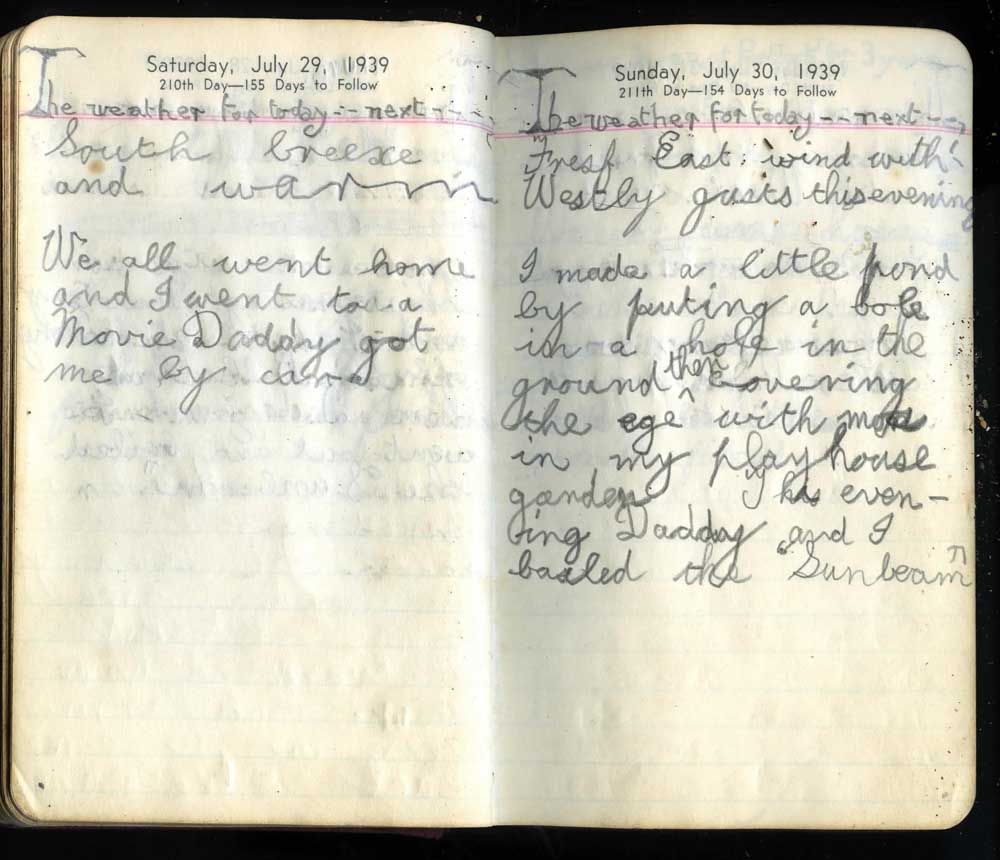 Saturday, July 29, 1939
210th Day—155 Days to Follow
The weather for today -- next ---
South breeze
and warm
We all went home
and I went to a
Movie Daddy got
me by car
Sunday, July 30, 1939
211th Day—154 Days to Follow
The weather for today -- next --
Fresh East: wind with
Westly gusts this evening
I made a little pond
by puting a bole
in a hole in the
ground then covering
the ege with moss
in my playhouse
garden This even-
ing Daddy and I
bailed the "Sunbeam"